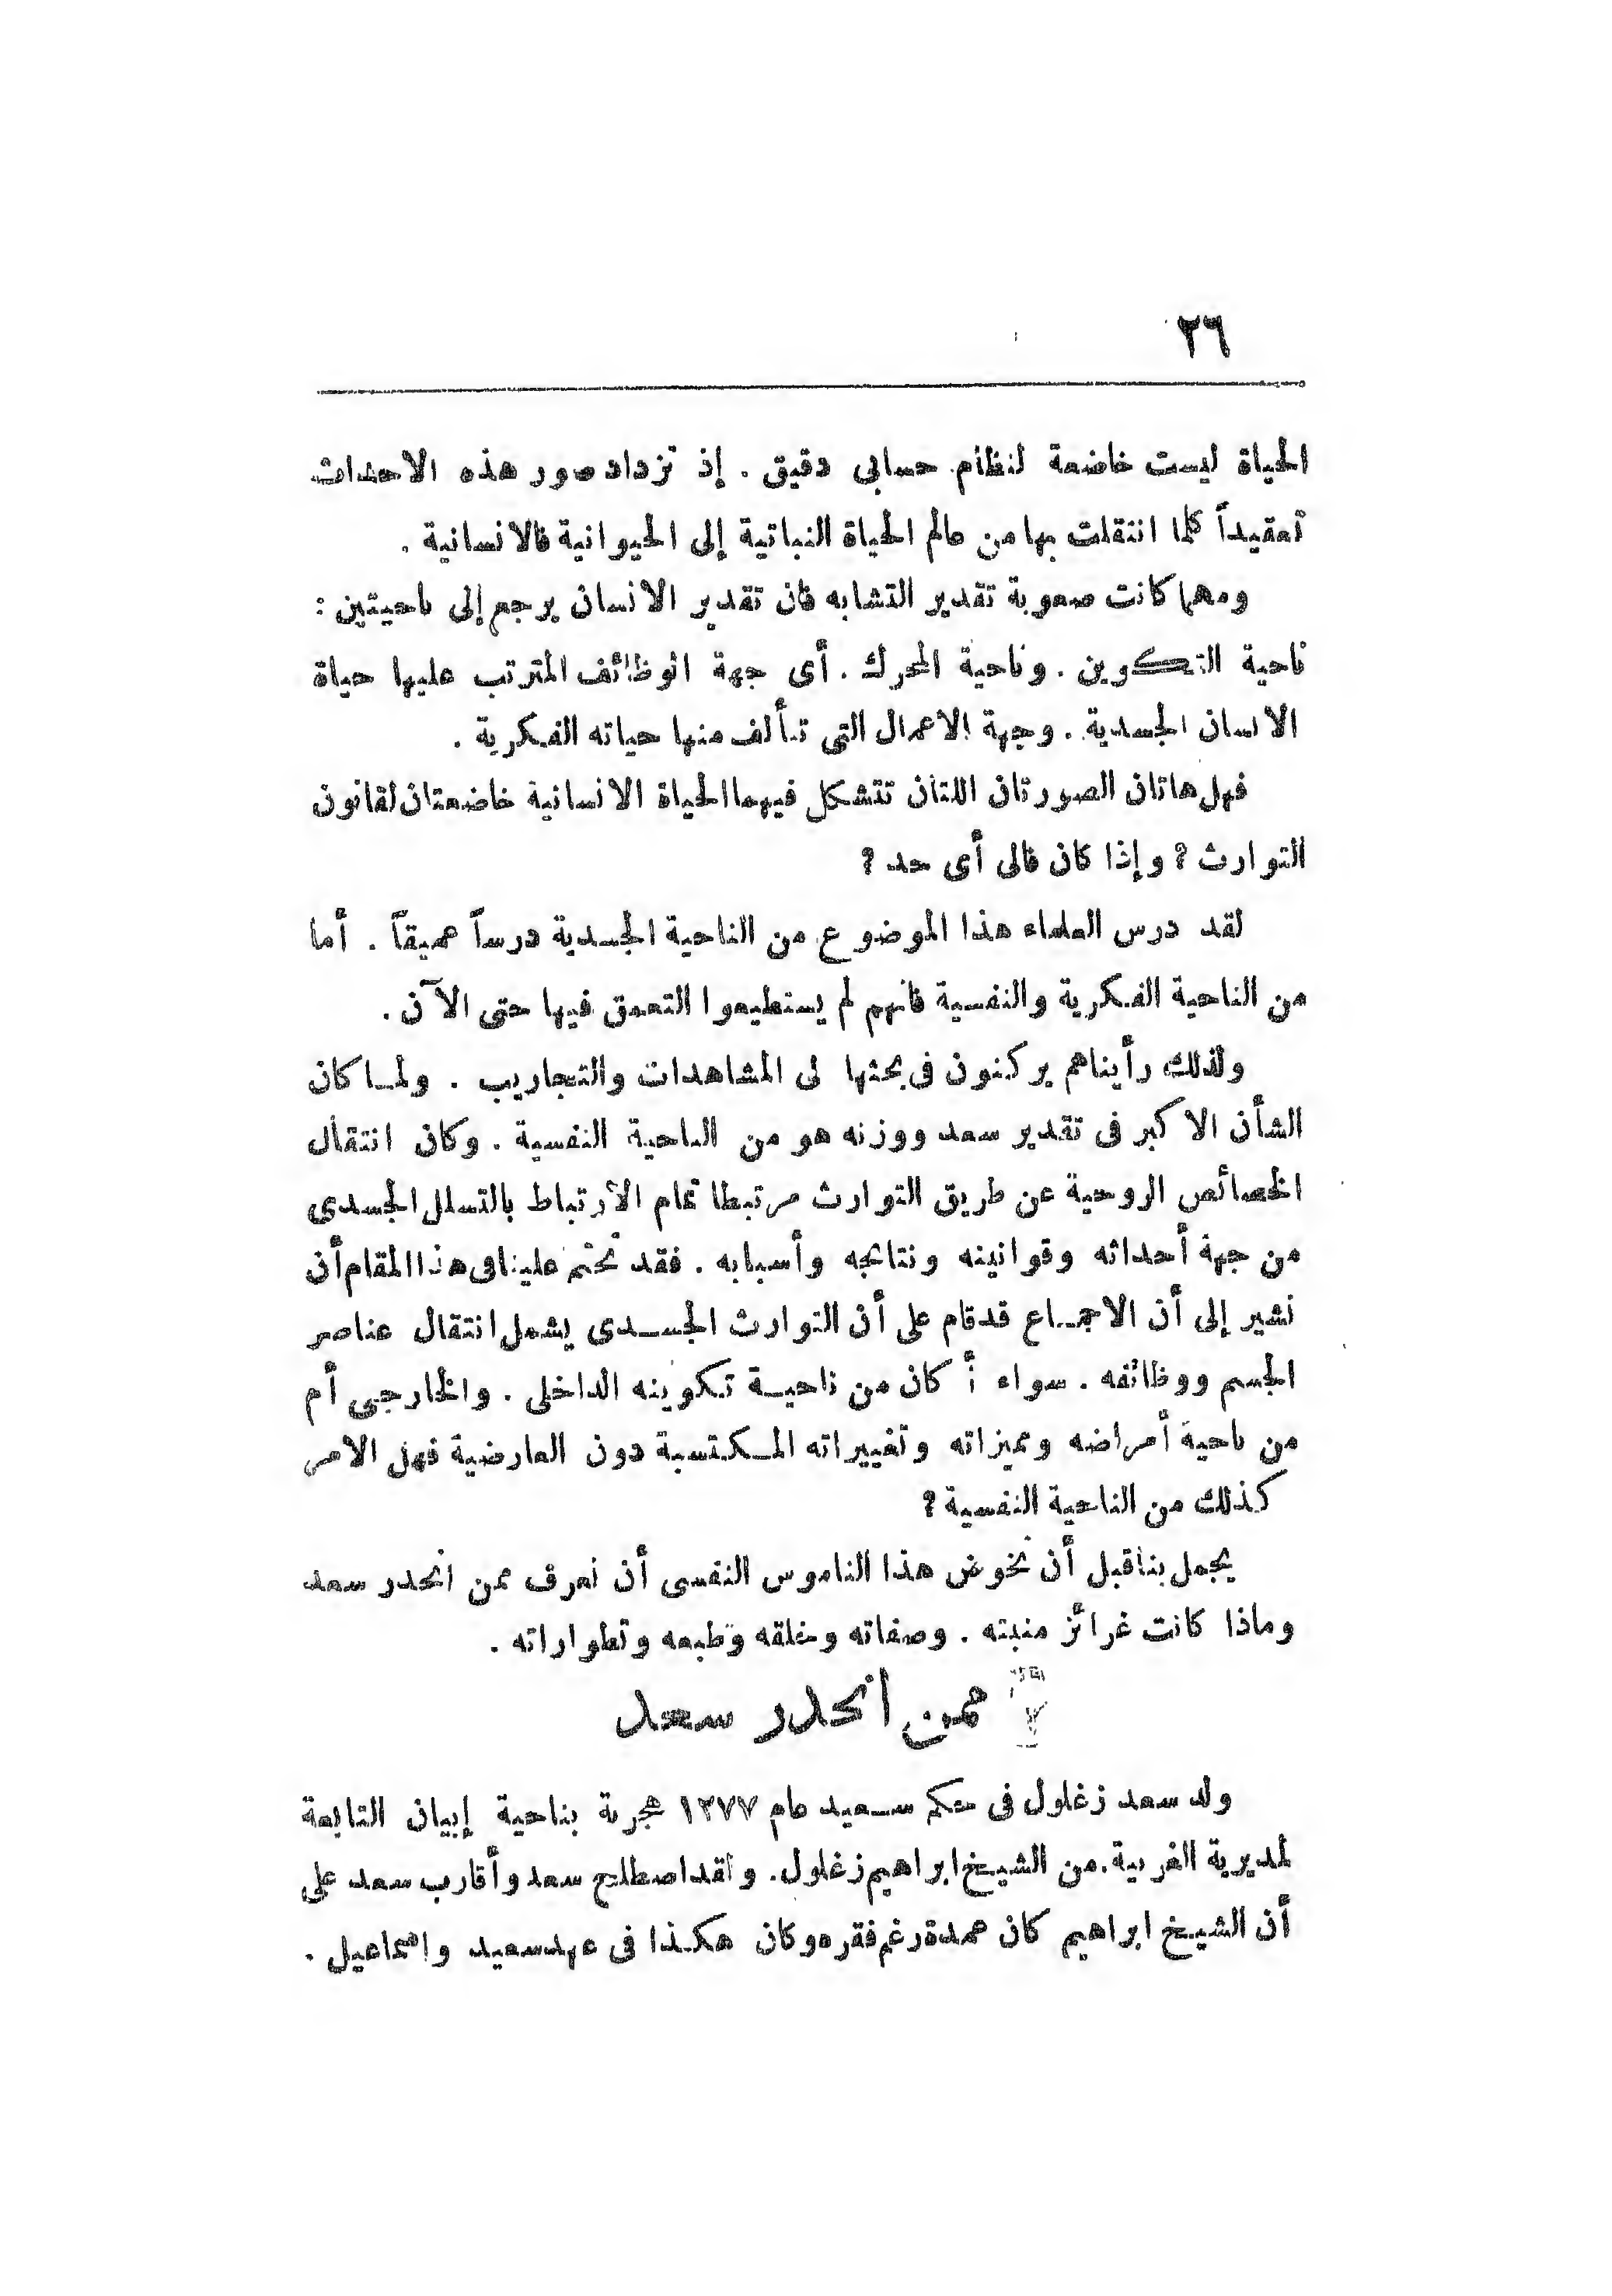 ٢٦
الحياة ليست خاضعة لنظام حسابى دقيق . إذ تزداد صور هذه الاحداث
تعقيداً كلما انتقلت بها من عالم الحياة النباتية إلى الحيوانية فالانسانية .
ومهما كانت صعوبة تقدير التشابه فان تقدير الانسان يرجع إلى ناحيتين :
ناحية التكوين . وناحية المحرك . أى جهة الوظائف المترتب عليها حياة
الانسان الجسدية . وجهة الاعمال التى تتألف منها حياته الفكرية .
فهل هاتان الصورتان اللتان تتشكل فيهما الحياة الانسانية خاضعتان لقانون
التوارث ؟ وإذا كان فالى أى حد ؟
لقد درس العلماء هذا الموضوع من الناحية الجسدية درساً عميقاً . أما
من الناحية الفكرية والنفسية فانهم لم يستطيعوا التعمق فيها حتى الآن .
ولذلك رأيناهم يركنون فى بحثها لى المشاهدات والتجاريب . ولما كان
الشأن الاكبر فى تقدير سعد ووزنه هو من الناحية النفسية . وكان انتقال
الخصائص الروحية عن طريق التوارث مرتبطا تمام الارتباط بالتسلل الجسدى
من جهة أحداثه وقوانينه ونتائجه وأسبابه . فقد تحتم علينا فى هذا المقام أن
نشير إلى أن الاجماع قد قام على أن التوارث الجسدى يشمل انتقال عناصر
الجسم ووظائفه . سواء أ كان من ناحية تكوينه الداخلى . والخارجى أم
من ناحية أمراضه ومميزاته وتغييراته المكتسبة دون العارضية فهل الامر
كذلك من الناحية النفسية ؟
يجمل بنا قبل أن نخوض هذا الناموس النفسى أن نعرف ممن انحدر سعد
وماذا كانت غرائز منبته . وصفاته وخلقه وطبعه وتطواراته .
ممن انحدر سعد
ولد سعد زغلول فى حكم سعيد عام ١٢٧٧ هجرية بناحية إبيان التابعة
لمديرية الغربية . من الشيخ ابراهيم زغلول . ولقد اصطلح سعد وأقارب سعد على
أن الشيخ ابراهيم كان عمدة رغم فقره وكان هكذا فى عهد سعيد واسماعيل .